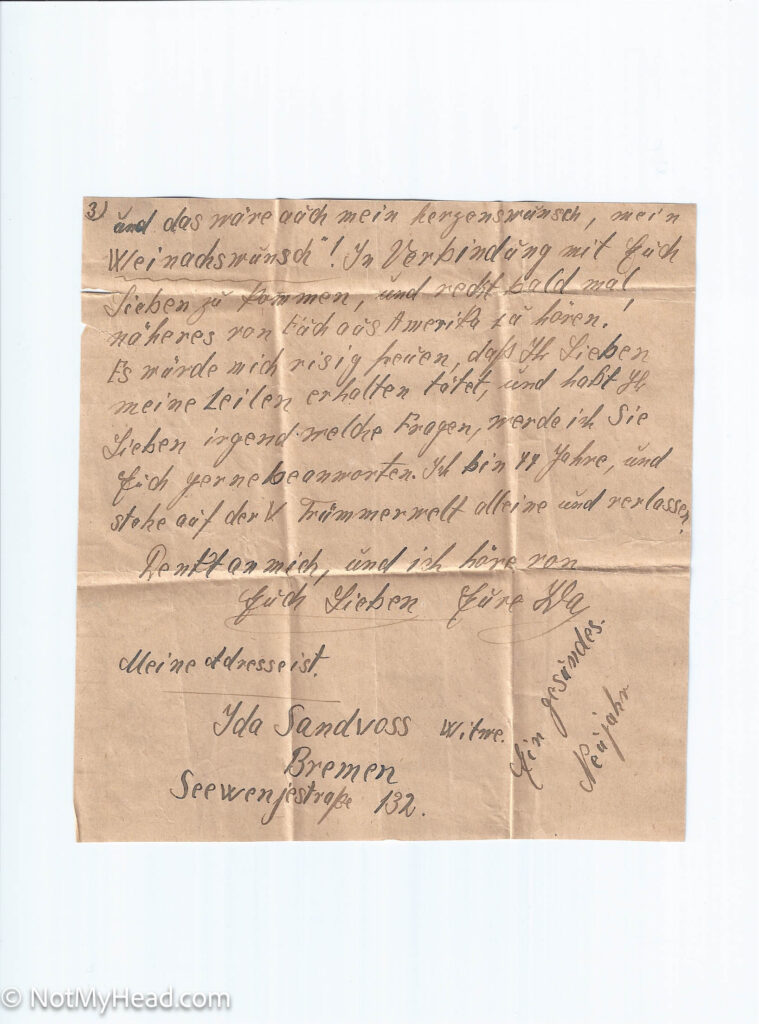 3)
und das wäre auch mein herzenswunsch, mein
Weinachswunsch"! In Verbindung mit Euch
Lieben zu kommen, und recht bald mal
näheres von Euch aus Amerika zu hören!
Es würde mich risig freuen, daß Ih Lieben
meine Zeilen erhalten tätet, und habt Ih
Lieben irgend welche Fragen, werde ich Sie
Euch gerne beanworten. Ich bin 77 Jahre, und
stehe auf der Trümmerwelt alleine und verlassen.
Denkt an mich, und ich höre von
Euch Lieben Eure Ida
Meine Adresse ist.
Ida Sandvoss Witwe.
Bremen
Seewenjestraße 132.
Ein gesundes.
Neujahr
© NotMyHead.com